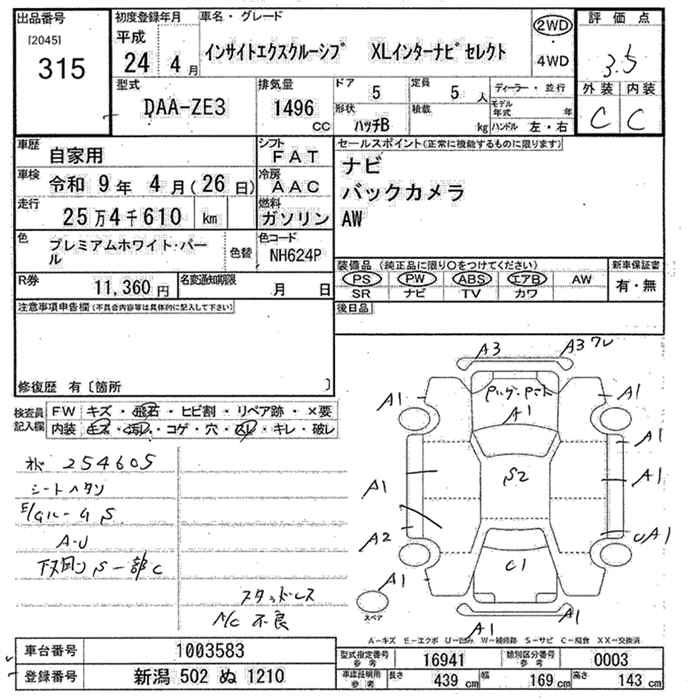 出品番号
[2045]
315
初度登録年月
平成
24年 4月
車名・グレード
インサイトエクスクルーシブ XLインターナビセレクト
2WD
・
4WD
評価点
3.5
外装 内装
C C
型式
DAA-ZE3
排気量
1496
CC
ドア 5
定員 5人
形状 ハッチB
積載 kg
ディーラー・並行
モデル年式 年
ハンドル 左・右
車歴
自家用
シフト
FAT
車検
令和 9年 4月(26日)
冷房
AAC
走行
25万4千610 km
燃料
ガソリン
色
プレミアムホワイト・パール
色替
色コード
NH624P
R券
11,360円
名変通知期限
月 日
セールスポイント(正常に機能するものに限ります)
ナビ
バックカメラ
AW
装備品(純正品に限り○をつけてください)
新車保証書
PS PW ABS エアB AW
SR ナビ TV カワ
有・無
後日品
注意事項申告欄(不具合内容等は具体的に記入して下さい)
修復歴 有〔箇所 〕
検査員
記入欄
FW キズ・飛石・ヒビ割・リペア跡・×要
内装 キズ・汚れ・コゲ・穴・スレ・キレ・破レ
254605
シートヘタリ
A-U
下廻りS一部C
スタッドレス
A/C不良
A3
A3ワレ
A1
A1
A1
A1
S2
A1
A1
A2
UA1
C1
A1
A1
スペア
A1
A1
A-キズ E-エクボ U-凹み W-補修跡 S-サビ C-腐食 XX-交換済
車台番号
1003583
登録番号
新潟 502 ぬ 1210
型式指定番号
参考
16941
類別区分番号
参考
0003
車認証明用
参考
長さ 439 cm
幅 169 cm
高さ 143 cm